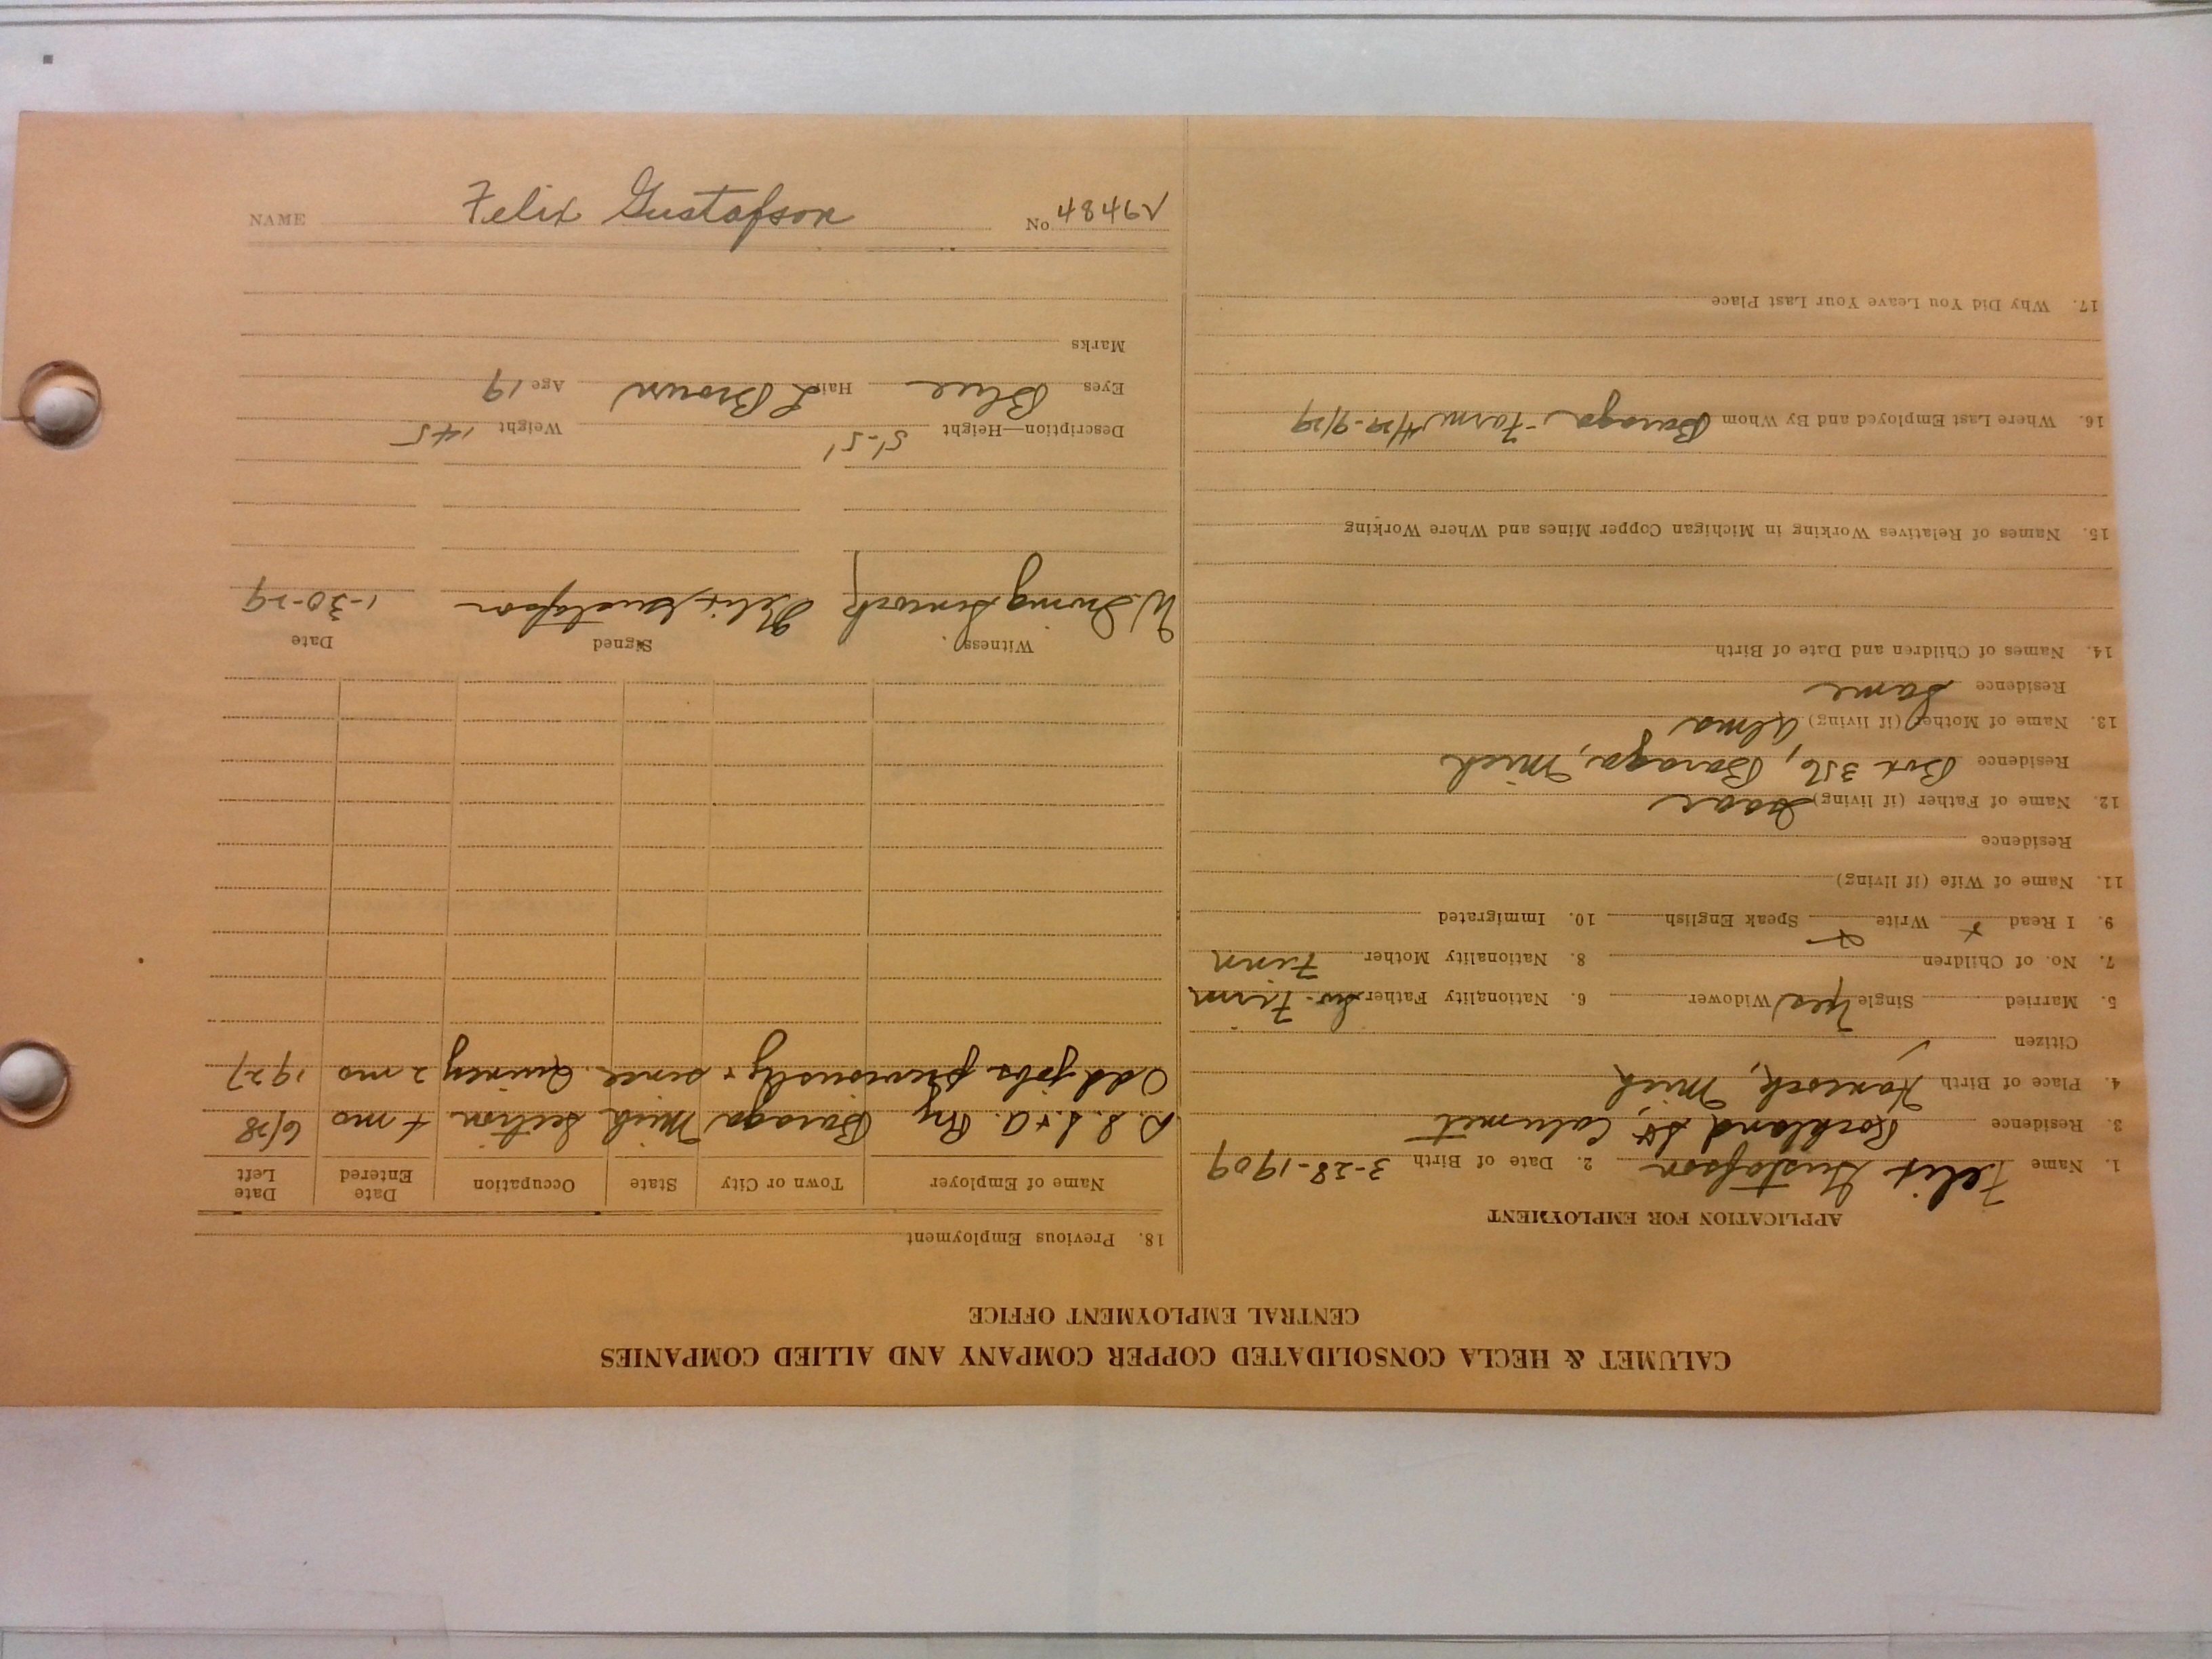 CALUMET & HECLA CONSOLIDATED COPPER COMPANY AND ALLIED COMPANIES
CENTRAL EMPLOYMENT OFFICE
APPLICATION FOR EMPLOYMENT
1. Name Felix Gustafson 2. Date of Birth 3-28-1909
3. Residence Rockland St, Calumet
4. Place of Birth Hancock, Mich
Citizen
5. Married Single Yes Widower 6. Nationality Father Sw. Finn
7. No. of Children 8. Nationality Mother Finn
9. I Read x Write x Speak English 10. Immigrated
11. Name of Wife (if living)
Residence
12. Name of Father (if living) Isaac
Residence Box 356, Baraga, Mich
13. Name of Mother (if living) Alma
Residence Same
14. Names of Children and Date of Birth
15. Names of Relatives Working in Michigan Copper Mines and Where Working
16. Where Last Employed and By Whom Baraga - Farm
17. Why Did You Leave Your Last Place
18. Previous Employment
Name of Employer Town or City State Occupation Date Entered Date Left
D.S.S. + A. Ry Baraga Mich Section mo 6/28
Odd jobs previously + since. Quincy 2 mo 1927
Witness Signed Date
W. Irving Felix Gustafson 1-30-29
Description—Height 5'-5' Weight 145
Eyes Blue Hair L Brown Age 19
Marks
NAME Felix Gustafson No 48462